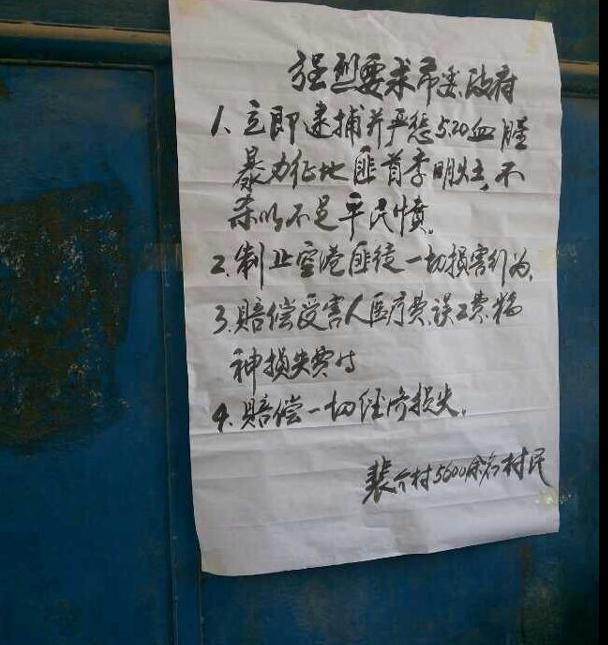 强烈要求市委政府
1、立即逮捕并严惩520血腥
暴力征地匪首李明炷,不
杀明不足平民愤。
2、制止空港匪徒一切损害行为、
3、赔偿受害人医疗费、误工费、精
神损失费
4、赔偿一切经济损失。
裴介村5600余名村民